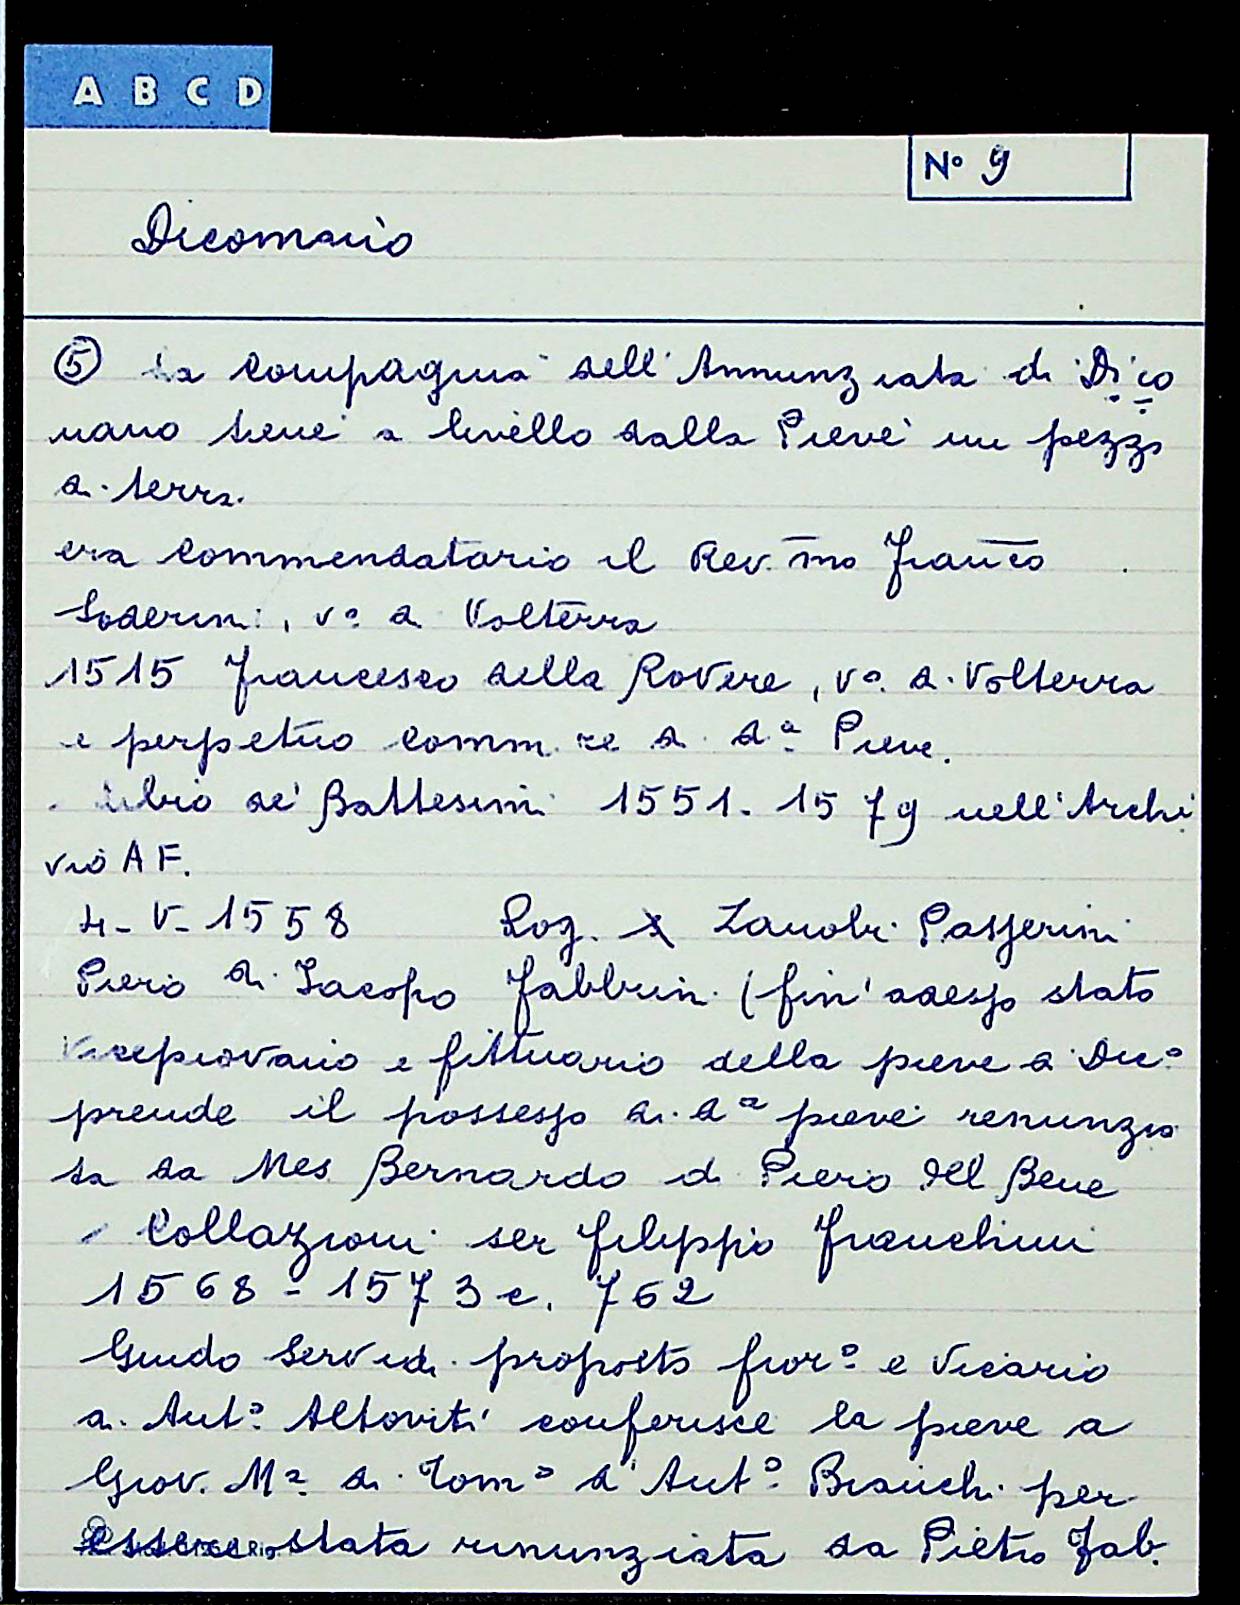 A B C D
Nº 9
Dicomano
⑤ La Compagnia dell'Annunziata di Dico
mano tiene a livello dalla Pieve un pezzo
di terra.
era Commendatario il Rev.mo Franco
Soderini, vº di Volterra
1515 Francesco della Rovere, vº di Volterra
e perpetuo Comm.re di dª Pieve.
Libro de' Battesimi 1551-1579 nell'Archi
vio A F.
4-V-1558 Rog. Zanobi Passerini
Piero di Iacopo Fabbrini (fin'adesso stato
Vicepiovano e fittuario della pieve a Dicº
prende il possesso di dª pieve renunzia
ta da Mes Bernardo di Piero del Bene
Collazioni ser Filippo Franchini
1568-1573 c. 762
Guido Servidi proposto fiorº e Vicario
di Antº Altoviti conferisce la pieve a
Giov. Mª di Tomº d'Antº Bianchi per
essere stata renunziata da Pietro Fab.